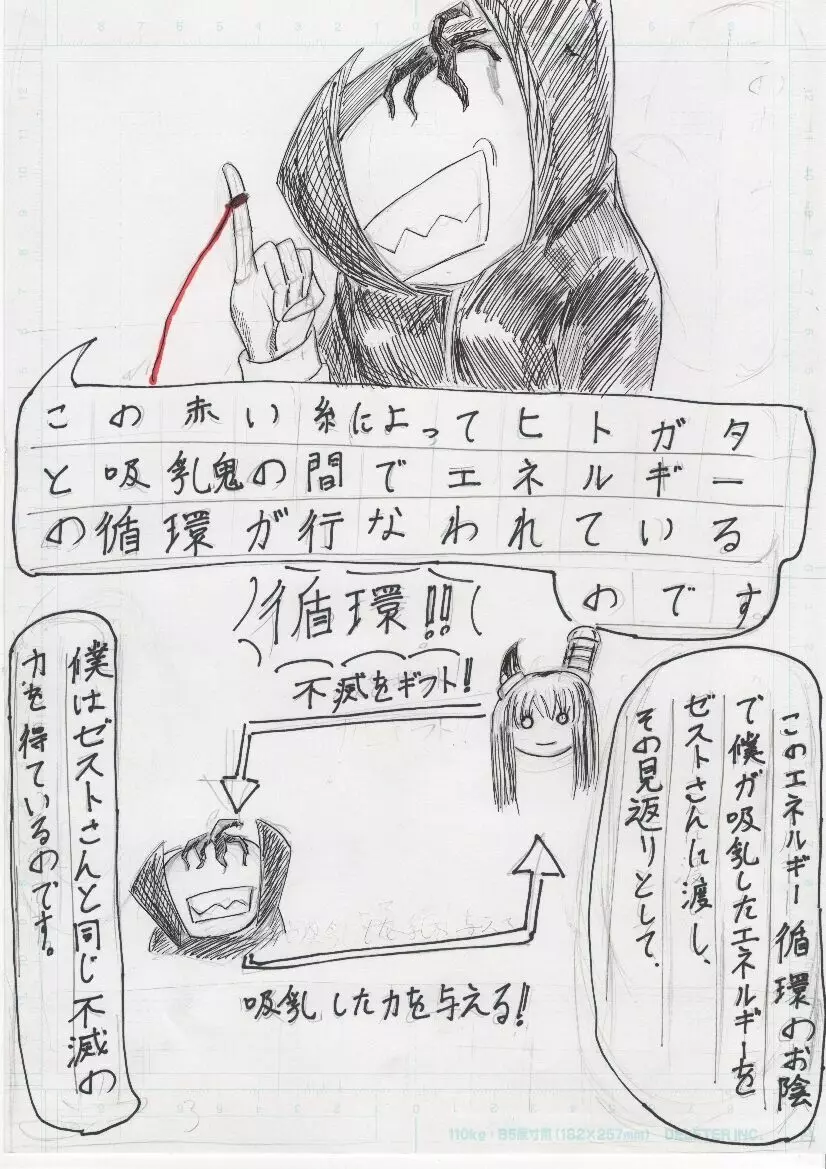 この赤い糸によってヒトガタ
と吸乳鬼の間でエネルギー
の循環が行なわれている
のです。
循環!!
不滅をギフト!
このエネルギー循環のお陰
で僕が吸乳したエネルギーを
ゼストさんに渡し、
その見返りとして、
僕はゼストさんと同じ不滅の
力を得ているのです。
吸乳した力を与える!!
110kg・B5原寸用(182×257mm) DELETER INC.